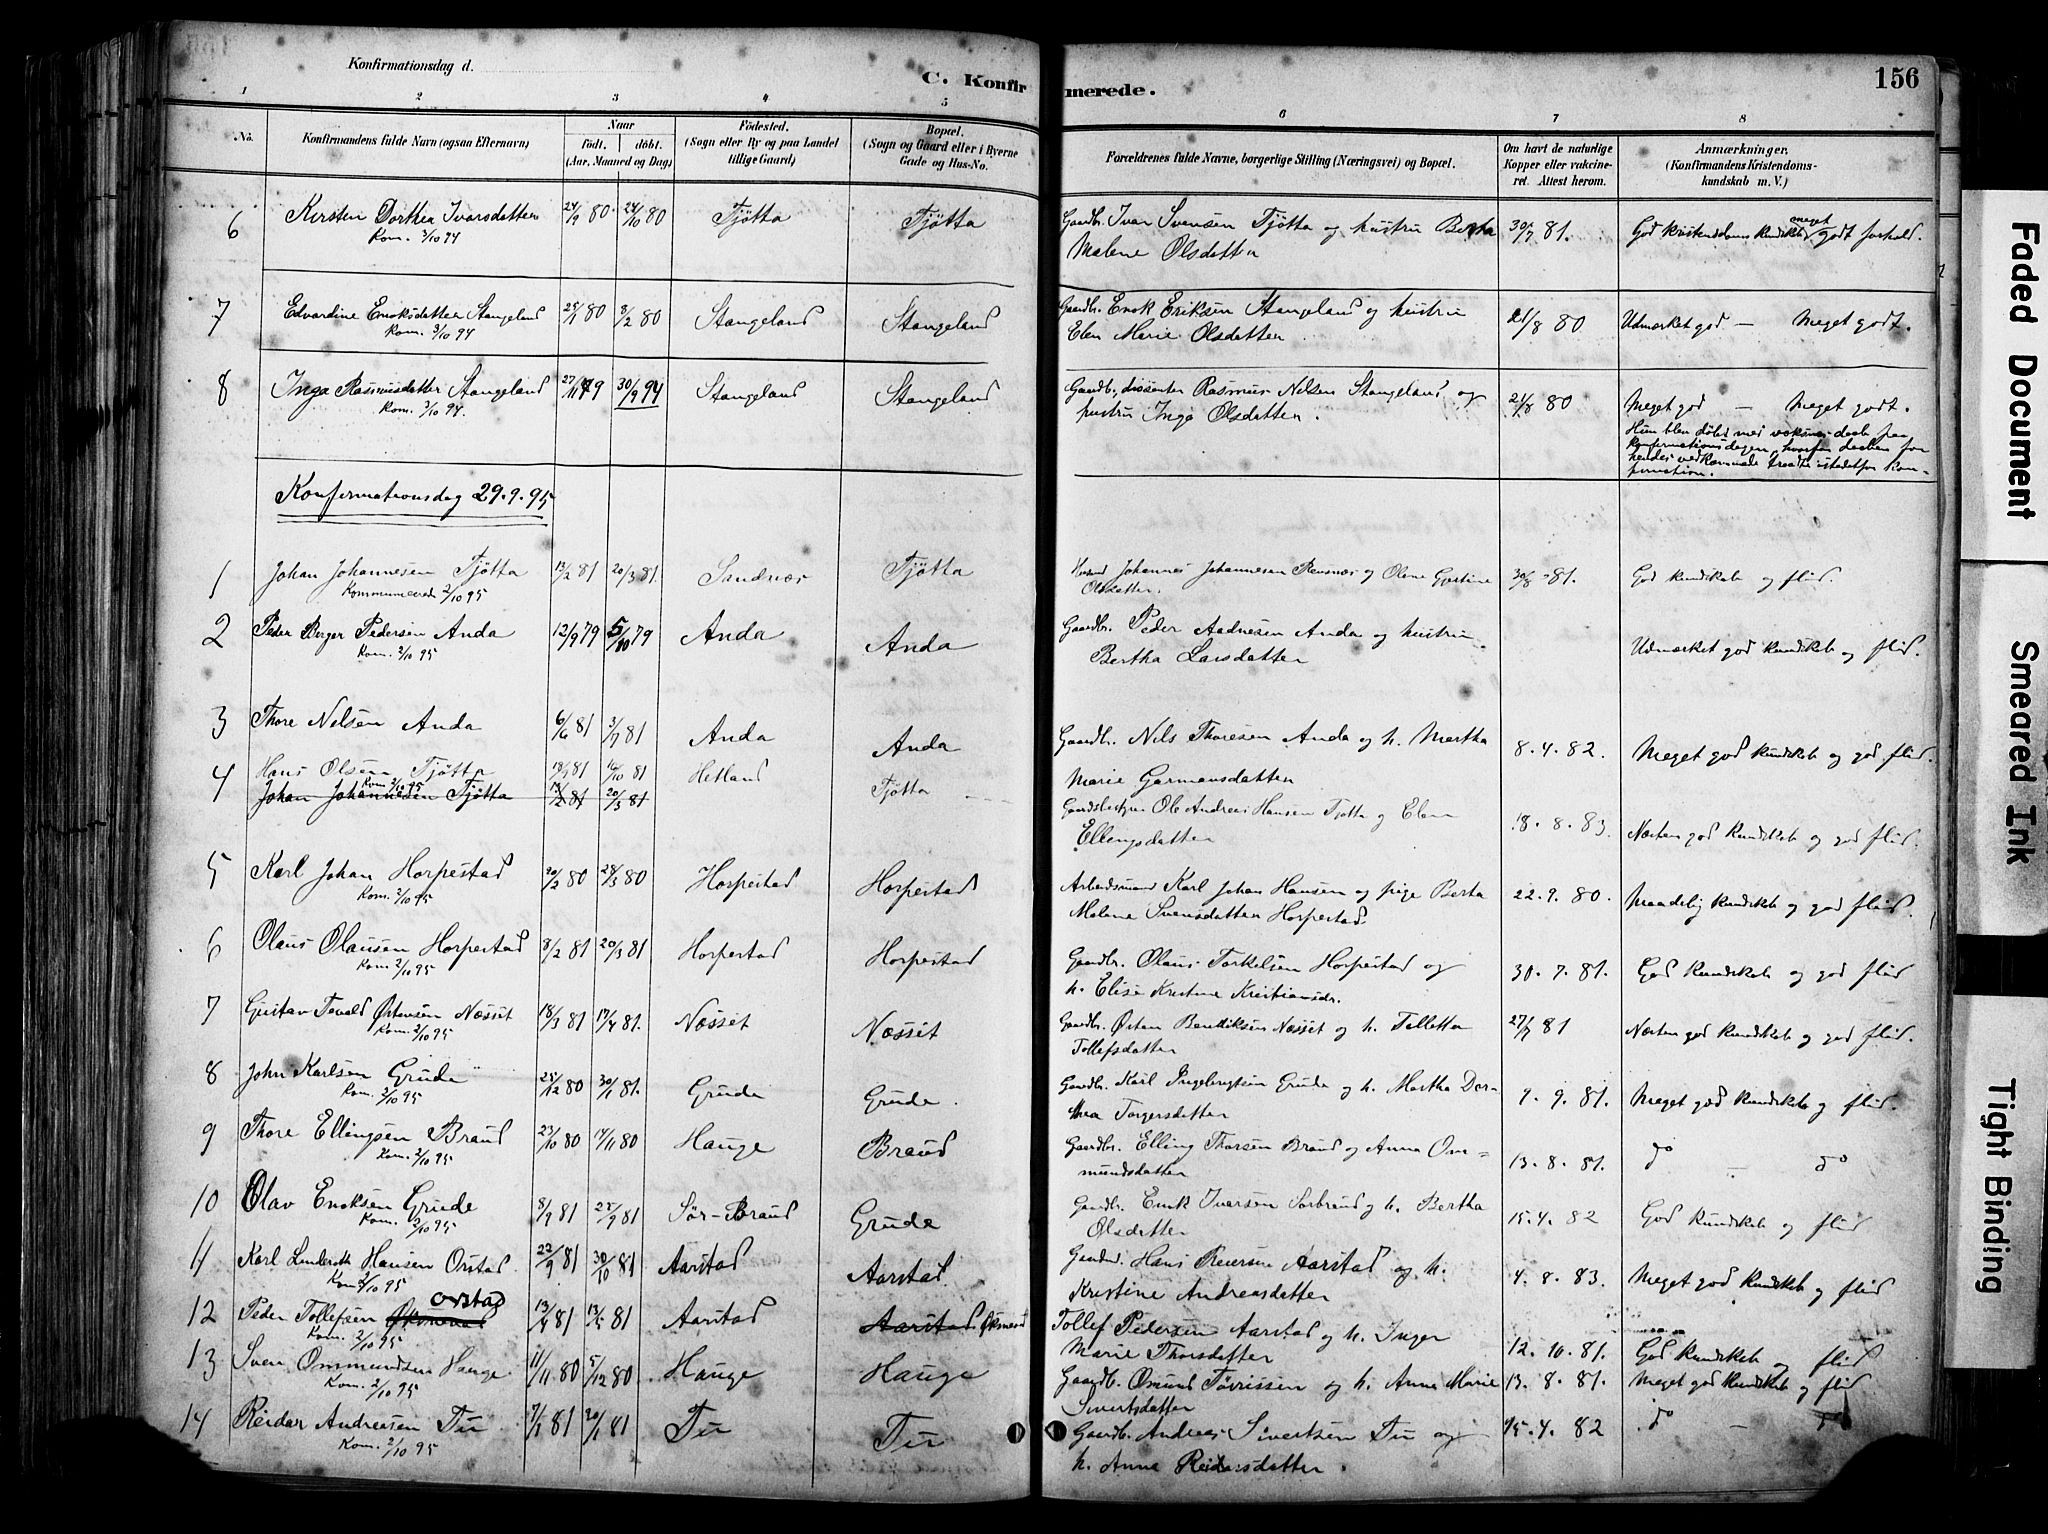 Konfirmationsdag d.
C. Konfirmerede.
156
1 2 3 4 5 6 7 8
No. Konfirmandens fulde Navn (ogsaa Efternavn) Naar født. døbt. (Aar, Maaned og Dag) Fødested. (Sogn eller By og paa Landet tillige Gaard) Bopæl. (Sogn og Gaard eller i Byerne Gade og Hus-No. Forældrenes fulde Navne, borgerlige Stilling (Næringsvei) og Bopæl. Om havt de naturlige Kopper eller vakcineret. Attest herom. Anmærkninger. (Konfirmandens Kristendomskundskab m. V.)
6 Kirsten Dorthea Ivarsdatter 24/9 80 24/10 80 Tjøtta Tjøtta Gaardb. Ivar Svensen Tjøtta og hustru Bertha 30/7 81. God kristendomskundskab meget godt forhold.
Kom. 3/10 94 Malene Olsdatter
7 Edvardine Eriksdatter Stangeland 25/1 80 8/2 80 Stangeland Stangeland Gaardb. Erik Eriksen Stangeland og hustru 21/8 80 Udmærket god — Meget godt.
Kom. 3/10 94 Elen Marie Olsdatter
8 Inga Rasmusdatter Stangeland 27/11 79 30/9 94 Stangeland Stangeland Gaardb., dissenter Rasmus Nelsen Stangeland og 21/8 80 Meget god — Meget godt.
Kom. 3/10 94. hustru Inga Olsdatter. Hun blev døbt med voksnes daab paa
konfirmationsdagen, hvorfor daaben for
hendes vedkommende traadte istedetfor Kon-
firmation.
Konfirmationsdag 29.9.95
1 Johan Johannesen Tjøtta 13/2 81 20/3 81. Sandnæs Tjøtta Johannes Johannesen og Olene Gjertine 30/8 81. God kundskab og flid.
Kommunicered 2/10 95 Olsdatter.
2 Peder Berger Pedersen Anda 12/9 79 5/10 79 Anda Anda Gaardb. Peder Aadnesen Anda og hustru Udmærket god kundskab og flid.
Kom. 2/10 95 Bertha Larsdatter
3 Thore Nelsen Anda 6/6 81 3/7 81 Anda Anda Gaardb. Nils Thoresen Anda og h. Martha 8.4.82. Meget god kundskab og god flid.
Marie Garmansdatter
4 Hans Olsen Tjøtta 18/9 81 16/10 81 Hetland Tjøtta Gaardbestyrer Ole Andreas Hansen Tjøtta og Elen 18.8.83. Næsten god kundskab og god flid.
Kom 2/10 95
Johan Johannesen Tjøtta 13/2 81 20/3 81 Ellingsdatter
5 Karl Johan Horpestad 20/2 80 28/3 80 Horpestad Horpestad Arbeidsmand Karl Johan Hansen og pige Berta 22.9.80. Maadelig kundskab og god flid.
Kom. 2/10 95 Malene Svensdatter Horpestad.
6 Olaus Olausen Horpestad 8/2 81 20/3 81 Horpestad Horpestad Gaardb. Olaus Torkelsen Horpestad og 30.7.81. God kundskab og god flid
Kom 2/10 95 h. Elise Kristine Kristiansdr.
7 Gustav Tevald Østensen Næsset 18/3 81 17/4 81. Næsset Næsset Gaardb. Østen Bendiksen Næsset og h. Tolletta 27/7 81 Næsten god kundskab og god flid.
Kom. 2/10 95 Tollefsdatter
8 John Karlsen Grude 25/12 80 30/1 81. Grude Grude. Gaardb. Karl Ingebrigtsen Grude og h. Martha Dor- 9.9.81. Meget god kundskab og flid.
Kom. 2/10 95 thea Torgersdatter
9 Thore Ellingsen Braud 23/10 80 14/11 80 Hauge Braud Gaardb. Elling Thorsen Braud og Anna Om= 13.8.81. do — do
Kom. 2/10 95 mundsdatter
10 Olav Eriksen Grude 8/9 81 25/9 81 Sør-Braud Grude Gaardb. Erik Ivarsen Sørbraud og h. Bertha 15.4.82 God kundskab og flid
Kom. 2/10 95 Olsdatter
11 Karl Hansen Orstad 22/9 81 30/10 81 Aarstad Aarstad. Hans Reiersen Aarstad og h. 4.8.83. Meget god kundskab og flid
Kom 2/10 95 Kristine Andreasdatter
12 Peder Tollefsen Øksnevad Orstad 13/4 81 13/5 81 Aarstad Aarstad. Øksnevad Tollef Pedersen Aarstad og h. Inger 12.10.81. God kundskab og flid
Kom. 2/10 95 Marie Thorsdatter
13 Sven Ommundsen Hauge 11/11 80 5/12 80 Hauge Hauge Gaardb. Omund Tøvrissen og h. Anna Marie 13.8.81. Meget god kundskab og flid
Kom. 2/10 95 Sivertsdatter
14 Reidar Andreasen Tu 7/1 81 30/1 81 Tu Tu Gaardb. Andreas Sivertsen Tu og 15.4.82 do — do
Kom. 2/10 95 h. Anna Reidarsdatter
Faded Document
Smeared Ink
Tight Binding